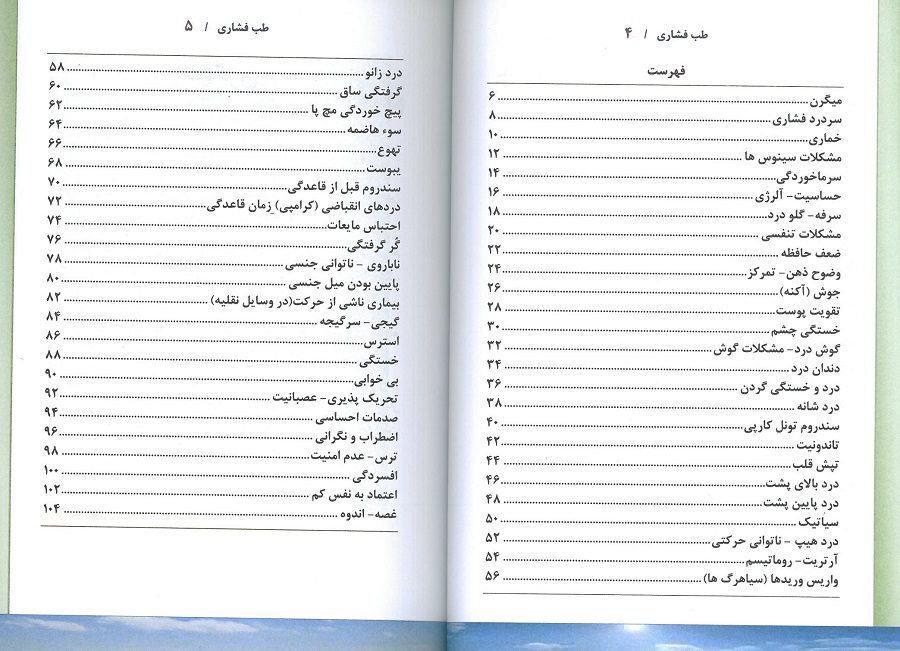 طب فشاری / ۴
فهرست
میگرن ........ ۶
سردرد فشاری ........ ۸
خماری ........ ۱۰
مشکلات سینوس ها ........ ۱۲
سرماخوردگی ........ ۱۴
حساسیت- آلرژی ........ ۱۶
سرفه- گلو درد ........ ۱۸
مشکلات تنفسی ........ ۲۰
ضعف حافظه ........ ۲۲
وضوح ذهن- تمرکز ........ ۲۴
جوش (آکنه) ........ ۲۶
تقویت پوست ........ ۲۸
خستگی چشم ........ ۳۰
گوش درد- مشکلات گوش ........ ۳۲
دندان درد ........ ۳۴
درد و خستگی گردن ........ ۳۶
درد شانه ........ ۳۸
سندروم تونل کارپی ........ ۴۰
تاندونیت ........ ۴۲
تپش قلب ........ ۴۴
درد بالای پشت ........ ۴۶
درد پایین پشت ........ ۴۸
سیاتیک ........ ۵۰
درد هیپ - ناتوانی حرکتی ........ ۵۲
آرتریت- روماتیسم ........ ۵۴
واریس وریدها (سیاهرگ ها) ........ ۵۶
طب فشاری / ۵
درد زانو ........ ۵۸
گرفتگی ساق ........ ۶۰
پیچ خوردگی مچ پا ........ ۶۲
سوء هاضمه ........ ۶۴
تهوع ........ ۶۶
یبوست ........ ۶۸
سندروم قبل از قاعدگی ........ ۷۰
دردهای انقباضی (کرامپی) زمان قاعدگی ........ ۷۲
احتباس مایعات ........ ۷۴
گُر گرفتگی ........ ۷۶
ناباروی - ناتوانی جنسی ........ ۷۸
پایین بودن میل جنسی ........ ۸۰
بیماری ناشی از حرکت(در وسایل نقلیه) ........ ۸۲
گیجی- سرگیجه ........ ۸۴
استرس ........ ۸۶
خستگی ........ ۸۸
بی خوابی ........ ۹۰
تحریک پذیری- عصبانیت ........ ۹۲
صدمات احساسی ........ ۹۴
اضطراب و نگرانی ........ ۹۶
ترس- عدم امنیت ........ ۹۸
افسردگی ........ ۱۰۰
اعتماد به نفس کم ........ ۱۰۲
غصه- اندوه ........ ۱۰۴